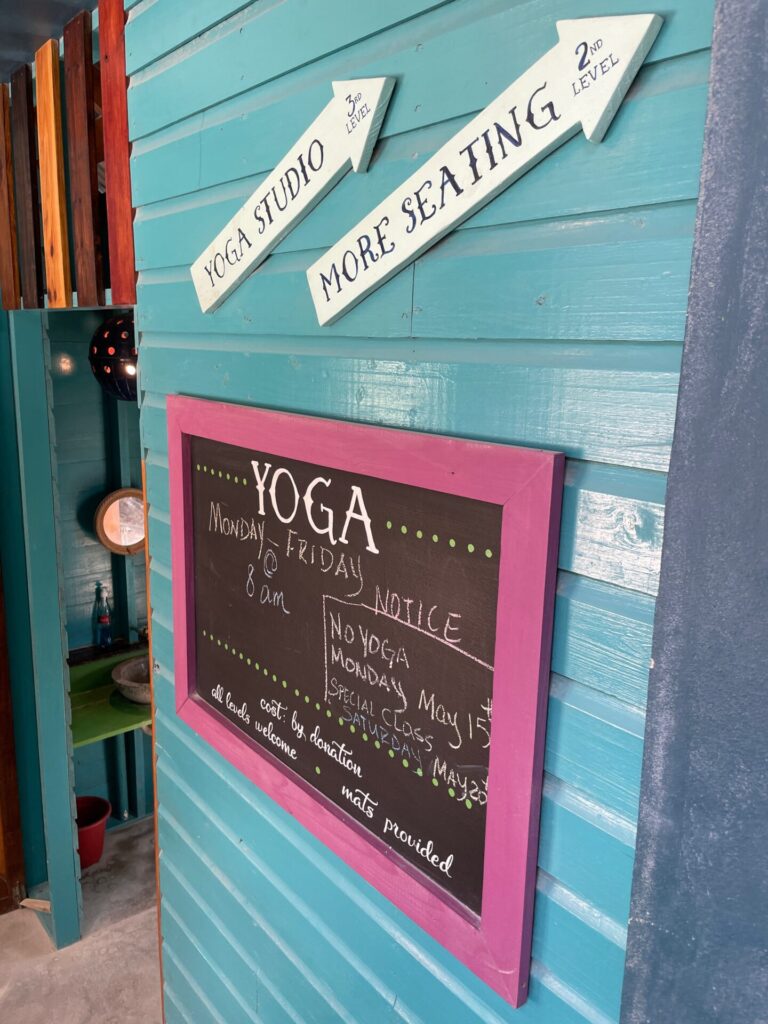 YOGA STUDIO
3RD
LEVEL
MORE SEATING
2ND
LEVEL
YOGA
MONDAY - FRIDAY
@
8 am
NOTICE
NO YOGA
MONDAY May 15
SPECIAL CLASS
SATURDAY MAY 20
cost: by donation
all levels welcome • mats provided